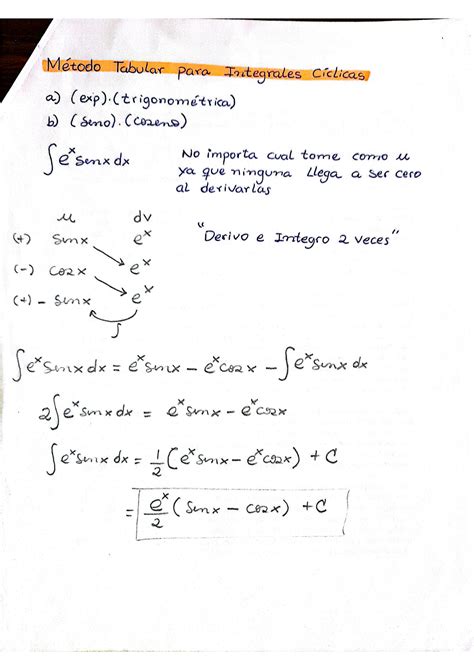 Método Tabular para Integrales Cíclicas
a) (exp).(trigonométrica)
b) (seno).(coseno)
∫e^x senx dx
No importa cual tome como u
ya que ninguna llega a ser cero
al derivarlas
u dv
(+) senx e^x
(-) cosx e^x
(+) - senx e^x
∫
"Derivo e Integro 2 veces"
∫e^x senx dx = e^x senx - e^x cosx - ∫e^x senx dx
2∫e^x senx dx = e^x senx - e^x cosx
∫e^x senx dx = 1/2 (e^x senx - e^x cosx) + C
= e^x/2 (senx - cosx) + C